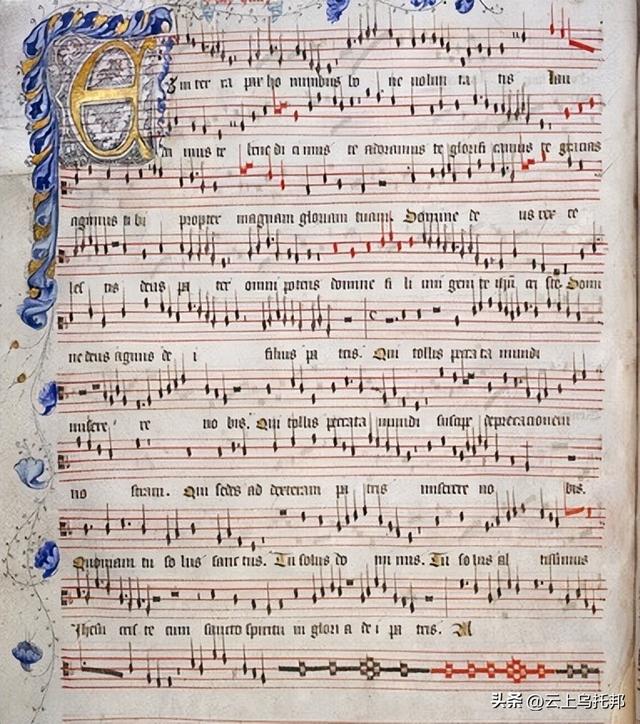 E
in ter ra pax ho minibus bo ne volun ta tis lau
da mus te bene di ci mus te adoramus te glorifi camus te gracias
agimus ti bi propter magnam gloriam tuam Domine de us rex ce
les tis deus pa ter omni potens domine fi li uni geni te ihu xpi ste Domi
ne deus agnus de i filius pa tris. Qui tollis peccata mundi
misere re no bis. Qui tollis peccata mundi suscipe deprecationem
no stram. Qui sedes ad dexteram pa tris miserere no bis.
Quoniam tu so lus sanctus. Tu solus do mi nus. Tu so lus al tissimus
Jhesu cris te cum sancto spiritu in glori a de i pa tris. A
头条 @云上乌托邦